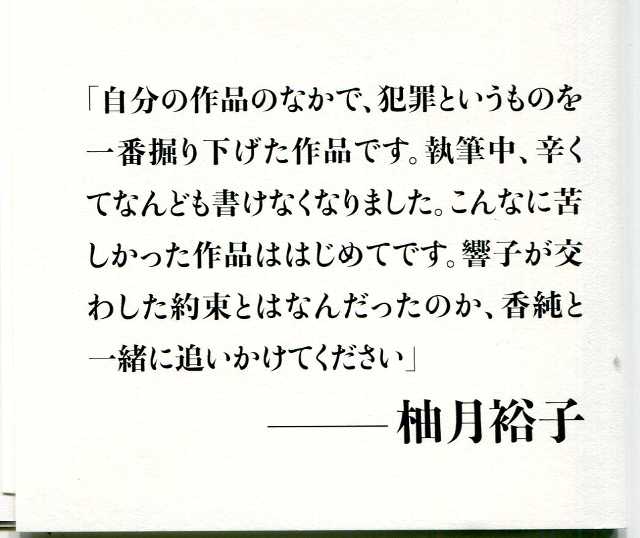 「自分の作品のなかで、犯罪というものを
一番掘り下げた作品です。執筆中、辛く
てなんども書けなくなりました。こんなに苦
しかった作品ははじめてです。響子が交
わした約束とはなんだったのか、香純と
一緒に追いかけてください」
――柚月裕子